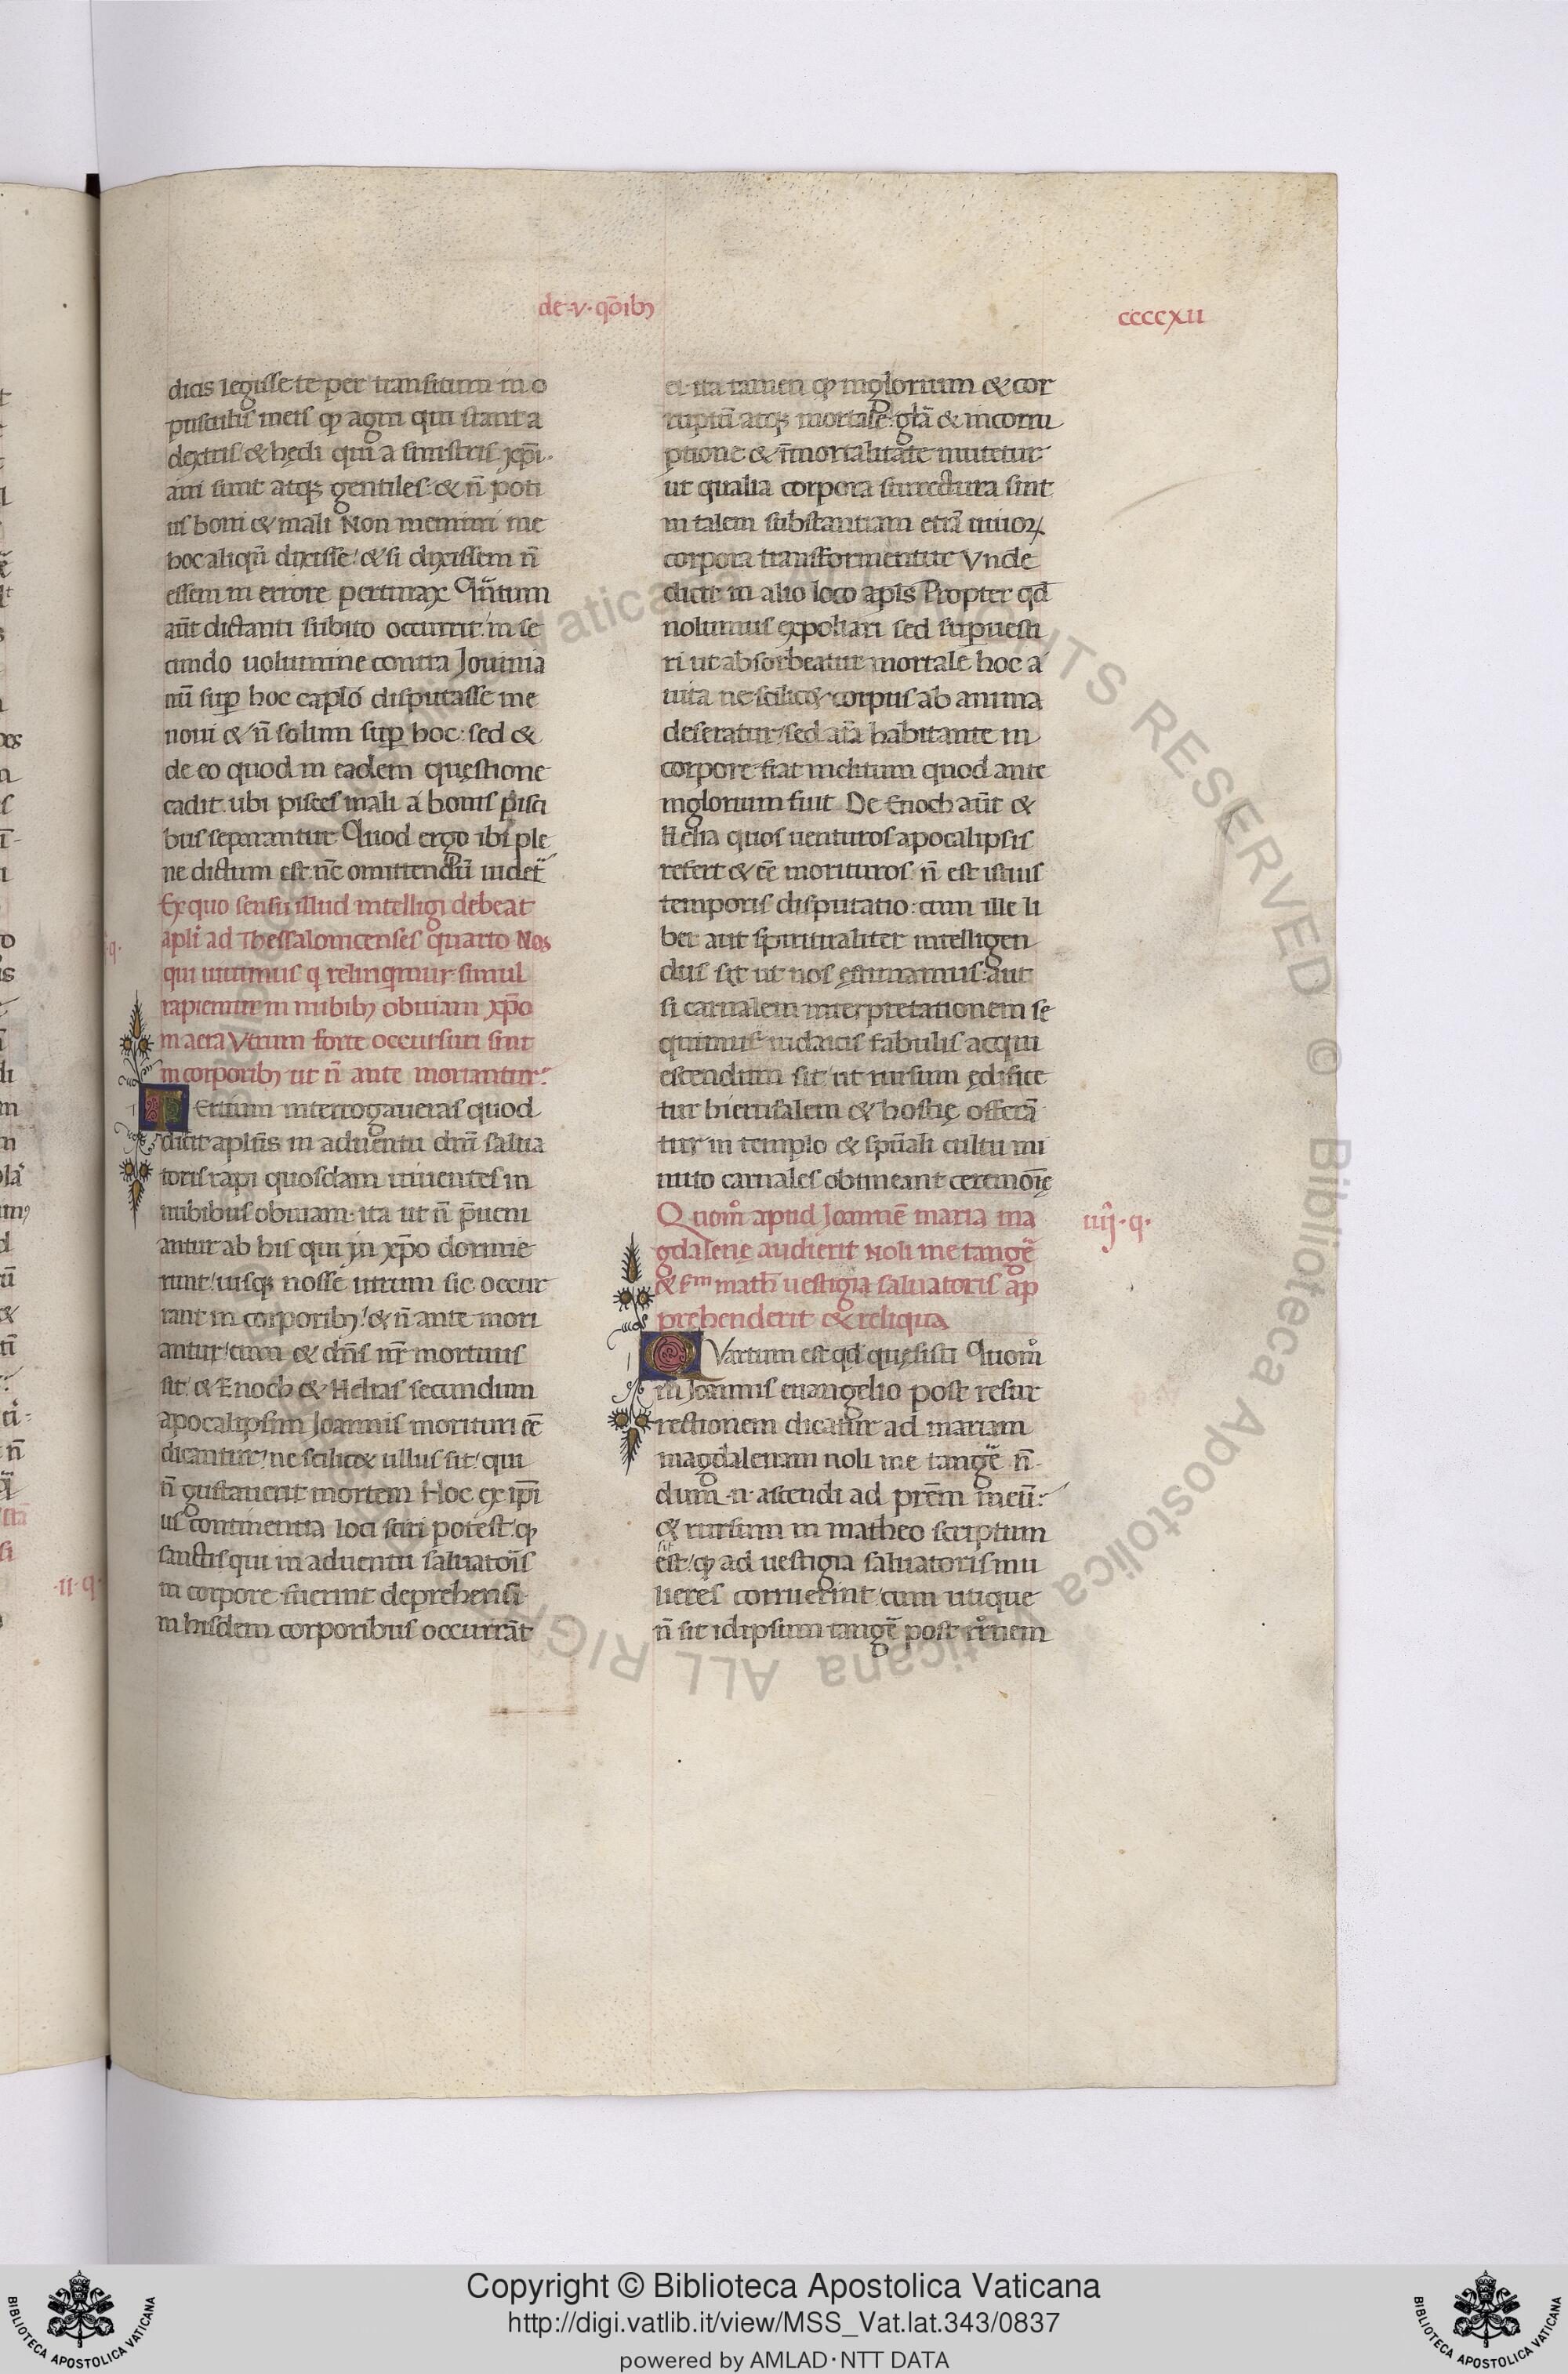 de .v. qo̅ibꝫ
ccccxii
dicis legisse te per transitum in o
pusculis meis ꝙ agni qui stant a
dextris / & hędi qui a sinistris. xp̅i
ani sunt atqꝫ gentiles: & n̅ poti
us boni & mali Non memini me
hoc aliqn̅ dixisse / & si dixissem n̅
essem in errore pertinax Qn̅tum
aut̅ dictanti subito occurrit: in se
cundo uolumine contra Jouinia
nu̅ sup̲ hoc capl̅o disputasse me
noui & n̅ solum sup̲ hoc: sed &
de eo quod in eadem questione
cadit. ubi pisces mali a bonis pisci
bus separantur Quod ergo ibi ple
ne dictum est: nc̅ omittendu̅ uidet̃
Ex quo sensu illud intelligi debeat
apl̅i ad Thessalonicenses quarto Nos
qui uiuimus q relinquimur simul
rapiemur in nubibꝫ obuiam xp̅o
in aera Vtrum forte occursuri sint
in corporibꝫ ut n̅ ante moriantur:
T Ertium interrogaueras quod
dicit apl̅us in aduentu dni̅ salua
toris rapi quosdam uiuentes in
nubibus obuiam. ita ut n̅ p̅ueni
antur ab his qui in xp̅o dormie
runt / uisqꝫ nosse utrum sic occur
rant in corporibꝫ / & n̅ ante mori
antur / cum & dn̅s nr̅ mortuus
sit / & Enoch & Helias secundum
apocalipsim Joannis morituri ee̅
dicantur / ne scilic& ullus sit / qui
n̅ gustauerit mortem Hoc ex ip̅i
us continentia loci sciri potest / ꝙ
sanctis qui in aduentu saluatoris
in corpore fuerint deprehensi
in hisdem corporibus occurra̅t
ei. ita tamen ꝙ inglorium & cor
ruptu̅ atqꝫ mortale: gla̅ & incorru
ptione & i̅mortalitate mutetur
ut qualia corpora surrectura sint
in talem substantiam etia̅ uiuoꝝ
corpora transformentur Vnde
dicit in alio loco apl̅s Propter qd̅
nolumus expoliari sed supuesti
ri ut absorbeatur mortale hoc a
uita ne scilic& corpus ab anima
deseratur / sed ai̅a habitante in
corpore fiat inclitum quod ante
inglorium fuit De Enoch aut̅ &
Helia quos uenturos apocalipsis
refert & ee̅ morituros n̅ est istius
temporis disputatio: cum ille li
ber aut spiritualiter intelligen
dus sit ut nos ęstimamus: aut
si carnalem interpretationem se
quimur iudaicis fabulis acqui
escendum sit / ut rursum ędifice
tur hierusalem & hostię offera̅
tur in templo & spu̅ali cultu mi
nuto carnales obtineant ceremoi̅ę
Quom̊ apud Joanne̅ maria ma
iiij. q.
gdalene audierit Noli me tange̅
& s̅m math̅ uestigia saluatoris ap
prehenderit & reliqua
Q Vartum est qd̅ quęsisti Quom̊
in Joannis euangelio post resur
rectionem dicatur ad mariam
magdalenam noli me tange̅ n̅
dum .n. ascendi ad prem̅ meu̅:
& rursum in matheo scriptum
sit
est / ꝙ ad uestigia saluatoris mu
lieres corruerint / cum utique
n̅ sit idipsum tange̅ post
Copyright © Biblioteca Apostolica Vaticana
http://digi.vatlib.it/view/MSS_Vat.lat.343/0837
powered by AMLAD·NTT DATA